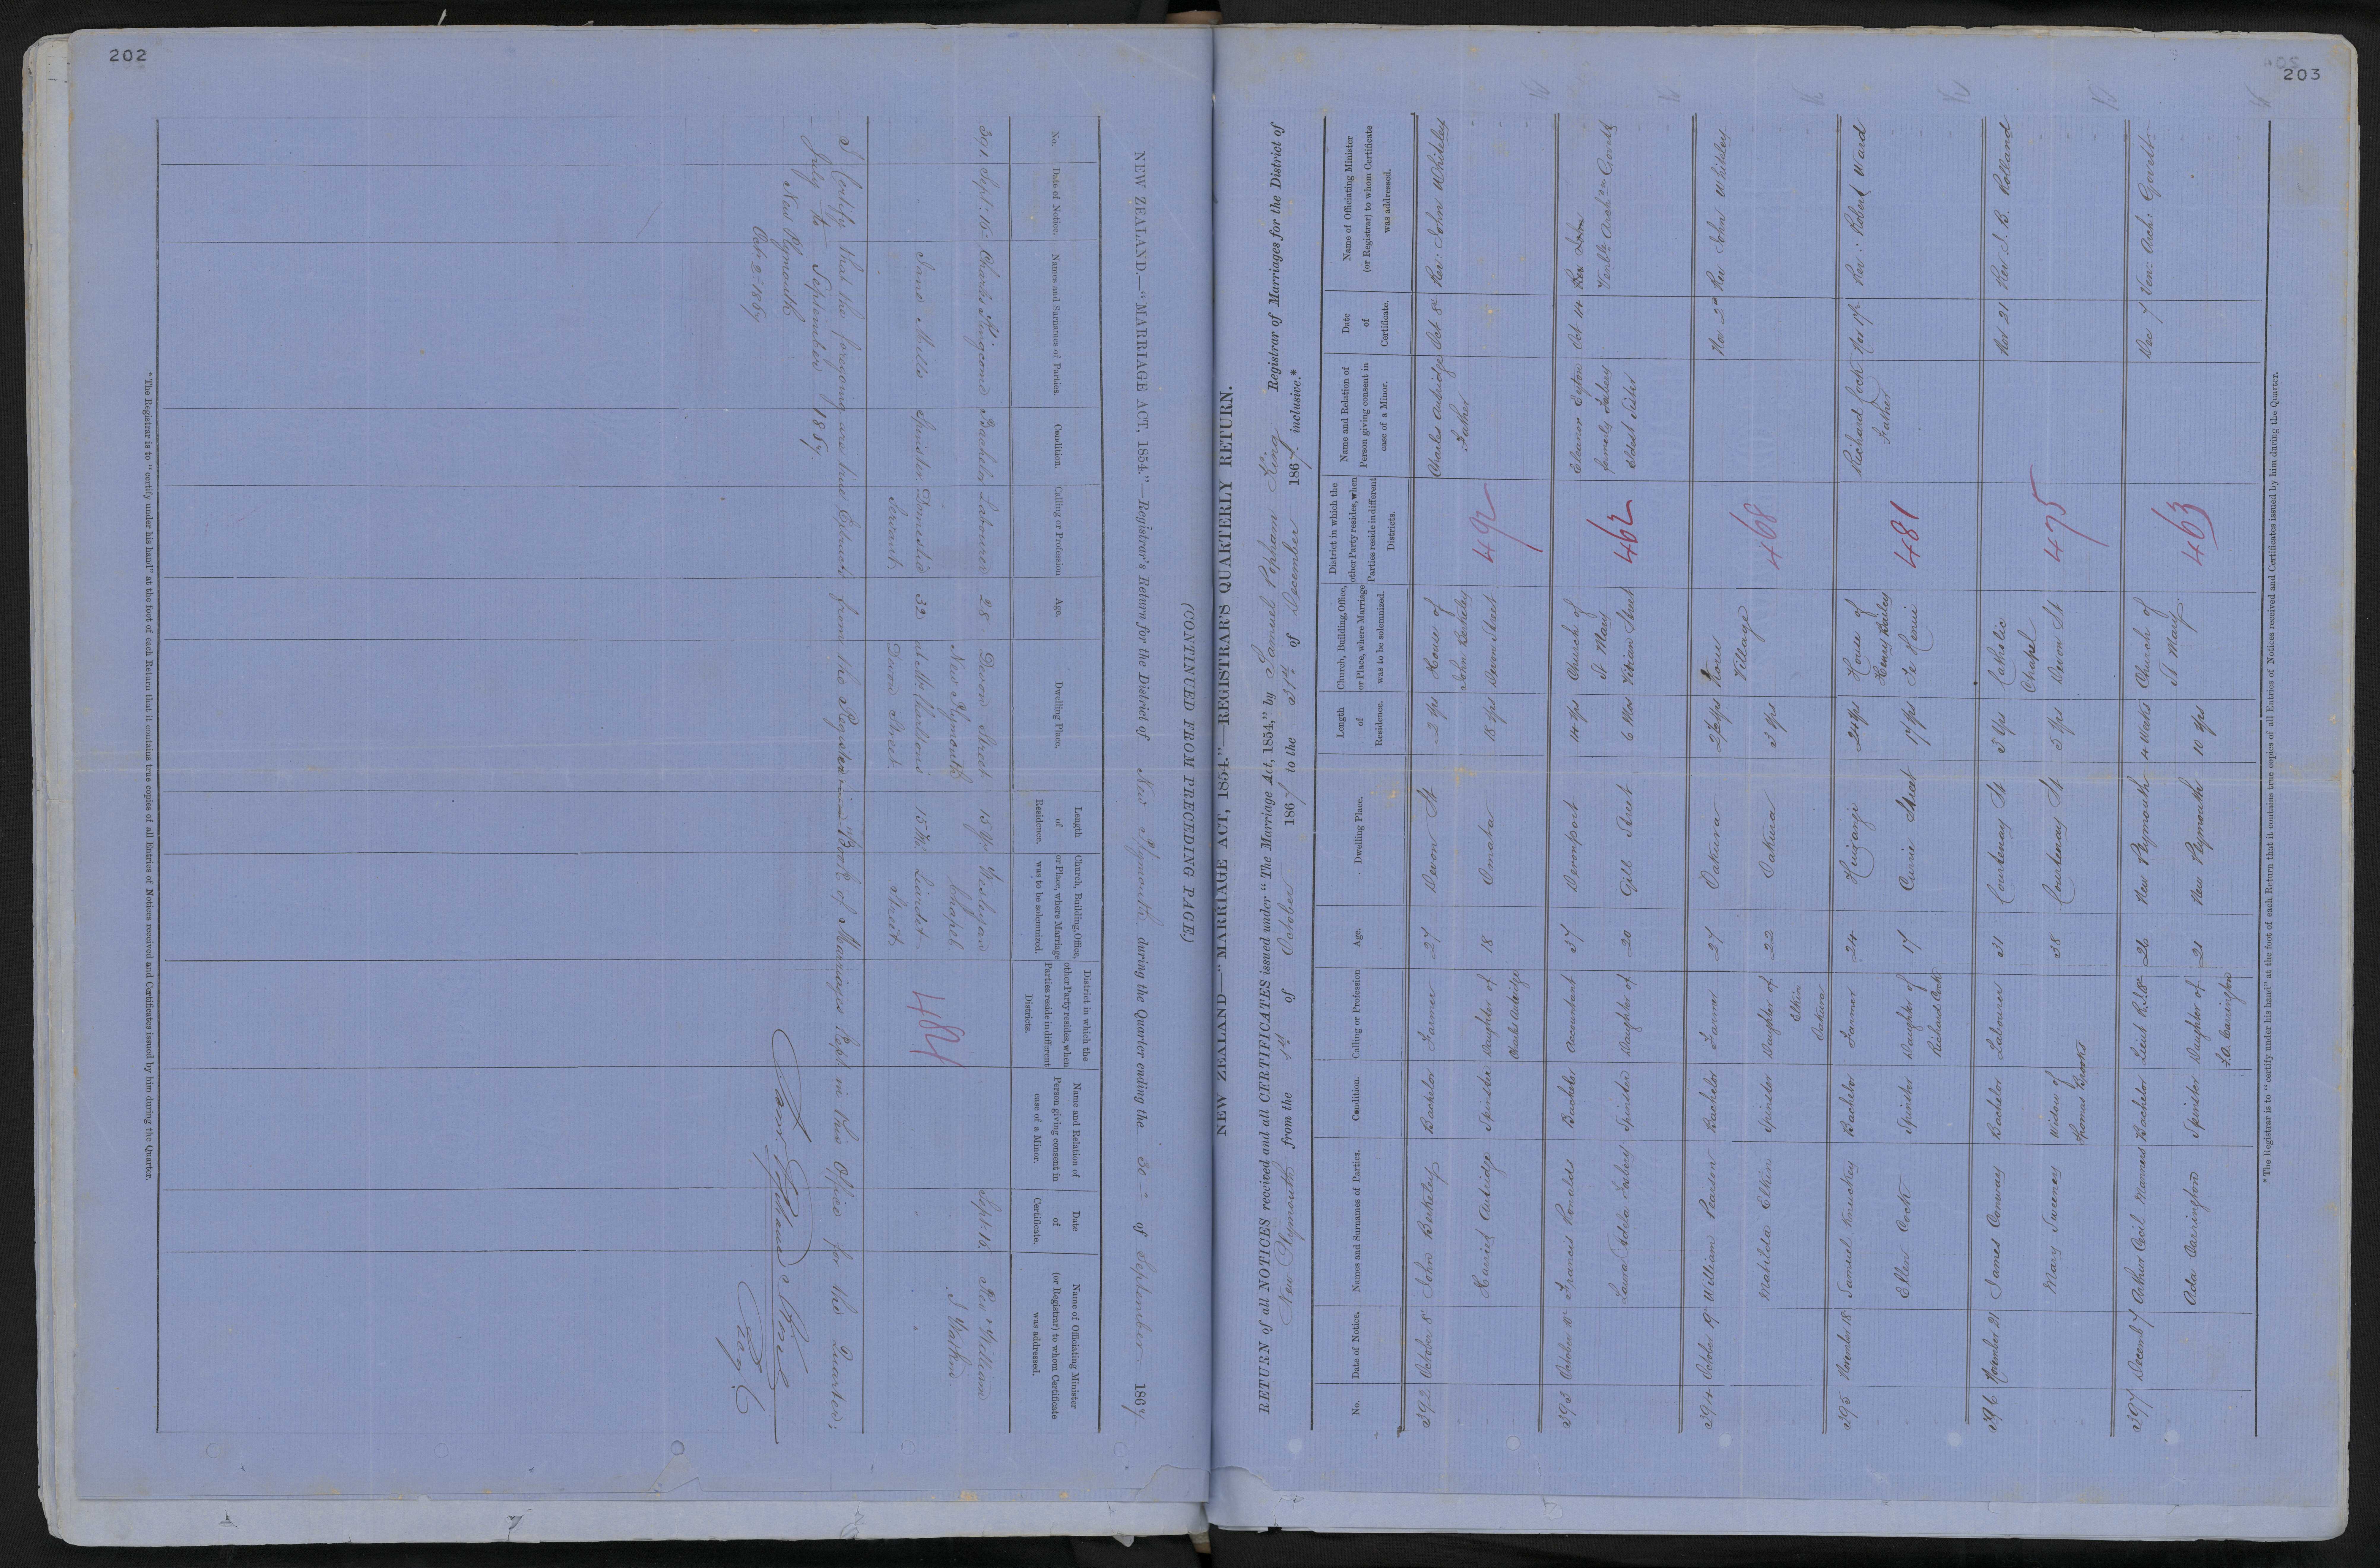 202
(CONTINUED FROM PRECEDING PAGE.)
NEW ZEALAND.—"MARRIAGE ACT, 1854."—Registrar's Return for the District of New Plymouth during the Quarter ending the 30th of September 1867
No.
Date of Notice.
Names and Surnames of Parties.
Condition.
Calling or Profession
Age.
Dwelling Place.
Length of Residence.
Church, Building, Office, or Place, where Marriage was to be solemnized.
District in which the other Party resides, when Parties reside in different Districts.
Name and Relation of Person giving consent in case of a Minor.
Date of Certificate.
Name of Officiating Minister (or Registrar) to whom Certificate was addressed.
391 Sept: 16 Charles Bachelor Labourer 28 Devon Street 15 Yrs Wesleyan Sept: 16 Rev William
New Plymouth Chapel
Jane Mills Spinster Domestic 32 at Mr 15 Liardet
Servant Devon Street Street
484
I Certify that the foregoing are true Extracts from the Register Book of Marriages Kept in this Office for the Quarter:
July to September 1867.
New Plymouth
Octr 2: 1867
* The Registrar is to "certify under his hand" at the foot of each Return that it contains true copies of all Entries of Notices received and Certificates issued by him during the Quarter.
203
NEW ZEALAND—"MARRIAGE ACT, 1854."—REGISTRAR'S QUARTERLY RETURN.
RETURN of all NOTICES received and all CERTIFICATES issued under "The Marriage Act, 1854," by Samuel Popham King Registrar of Marriages for the District of
New Plymouth from the 1st of October 1867 to the 31st of December 1867 inclusive.*
No.
Date of Notice.
Names and Surnames of Parties.
Condition.
Calling or Profession
Age.
Dwelling Place.
Length of Residence.
Church, Building, Office, or Place, where Marriage was to be solemnized.
District in which the other Party resides, when Parties reside in different Districts.
Name and Relation of Person giving consent in case of a Minor.
Date of Certificate.
Name of Officiating Minister (or Registrar) to whom Certificate was addressed.
392 October 8 John Berkeley Bachelor Farmer 27 Devon St 2 Yrs House of Charles Autridge Oct 8 Rev: John Whiteley
John Berkeley Father
Harriet Autridge Spinster Daughter of 18 Omaha 18 Yrs Devon Street 492
Charles Autridge
393 October 10 Francis Ronalds Bachelor Accountant 37 Devonport 14 Yrs Church of Eleanor Oct 14 Rev John
St Mary formerly Venble Archdn Govett
Laura Adela Spinster Daughter of 20 Gill Street 6 Mos Vivian Street 462 Eldest Sister
394 October 19 William Bachelor Farmer 27 Oakura Nov 22 Rev John Whiteley
Village
Matilda Elkin Spinster Daughter of 22 Oakura 3 Yrs 468
Elkin
Oakura
395 November 18 Samuel Knuckey Bachelor Farmer 24 Huirangi 24 Yrs House of Richard Cock Nov 18 Rev: Robert Ward
Henry Father
Ellen Cock Spinster Daughter of 17 Currie Street 17 Yrs Te Henui 481
Richard Cock
396 November 21 James Conway Bachelor Labourer 31 Courtenay St 3 Yrs Catholic Nov 21 Rev J. B. Rolland
Chapel
Mary Sweeney Widow of 38 Courtenay St 5 Yrs Devon St 475
Thomas Brooks
397 Decemb 7 Arthur Cecil Manners Bachelor Lieut 26 New Plymouth 4 Weeks Church of Dec 7 Ven: Arch: Govett
St Mary
Ada Carrington Spinster Daughter of 21 New Plymouth 10 Yrs 463
F. O. Carrington
* The Registrar is to "certify under his hand" at the foot of each Return that it contains true copies of all Entries of Notices received and Certificates issued by him during the Quarter.